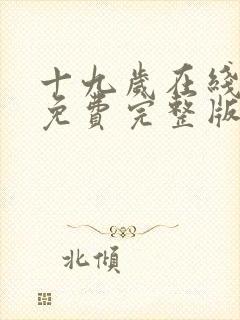 十九歲在綫
免費完整版
北傾